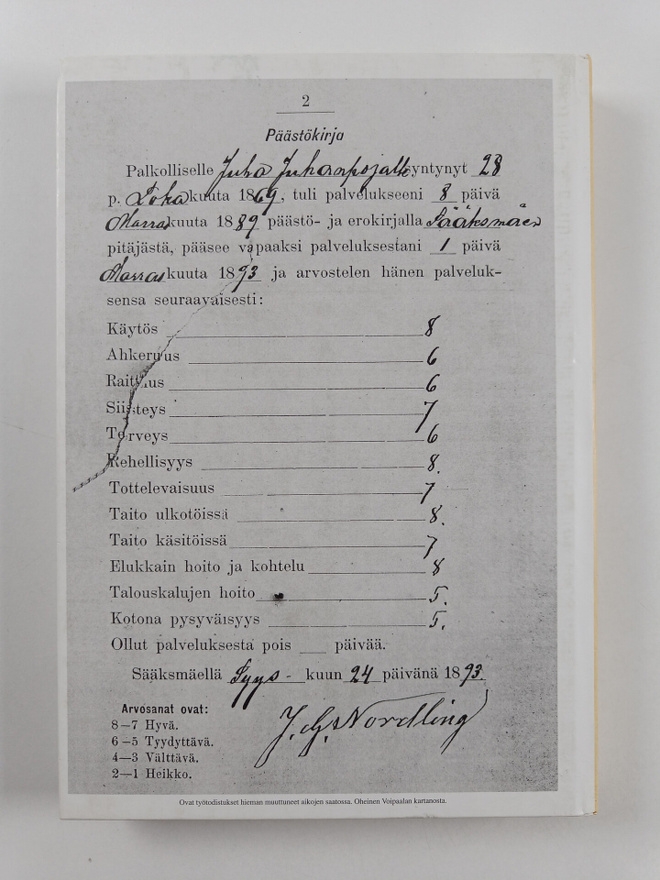 2
Päästökirja
Palkolliselle Juha Juhanpojalle syntynyt 28
p. Lokakuuta 1869, tuli palvelukseeni 8 päivä
Marraskuuta 1889 päästö- ja erokirjalla Sääksmäen
pitäjästä, pääsee vapaaksi palveluksestani 1 päivä
Marraskuuta 1893 ja arvostelen hänen palveluk-
sensa seuraavaisesti:
Käytös 8
Ahkeruus 6
Raittius 6
Siisteys 7
Terveys 6
Rehellisyys 8.
Tottelevaisuus 7
Taito ulkotöissä 8.
Taito käsitöissä 7
Elukkain hoito ja kohtelu 8
Talouskalujen hoito 5.
Kotona pysyväisyys 5.
Ollut palveluksesta pois ___ päivää.
Sääksmäellä Syys-kuun 24 päivänä 1893.
J. G. Nordling
Arvosanat ovat:
8—7 Hyvä.
6—5 Tyydyttävä.
4—3 Välttävä.
2—1 Heikko.
Ovat työtodistukset hieman muuttuneet aikojen saatossa. Oheinen Voipaalan kartanosta.